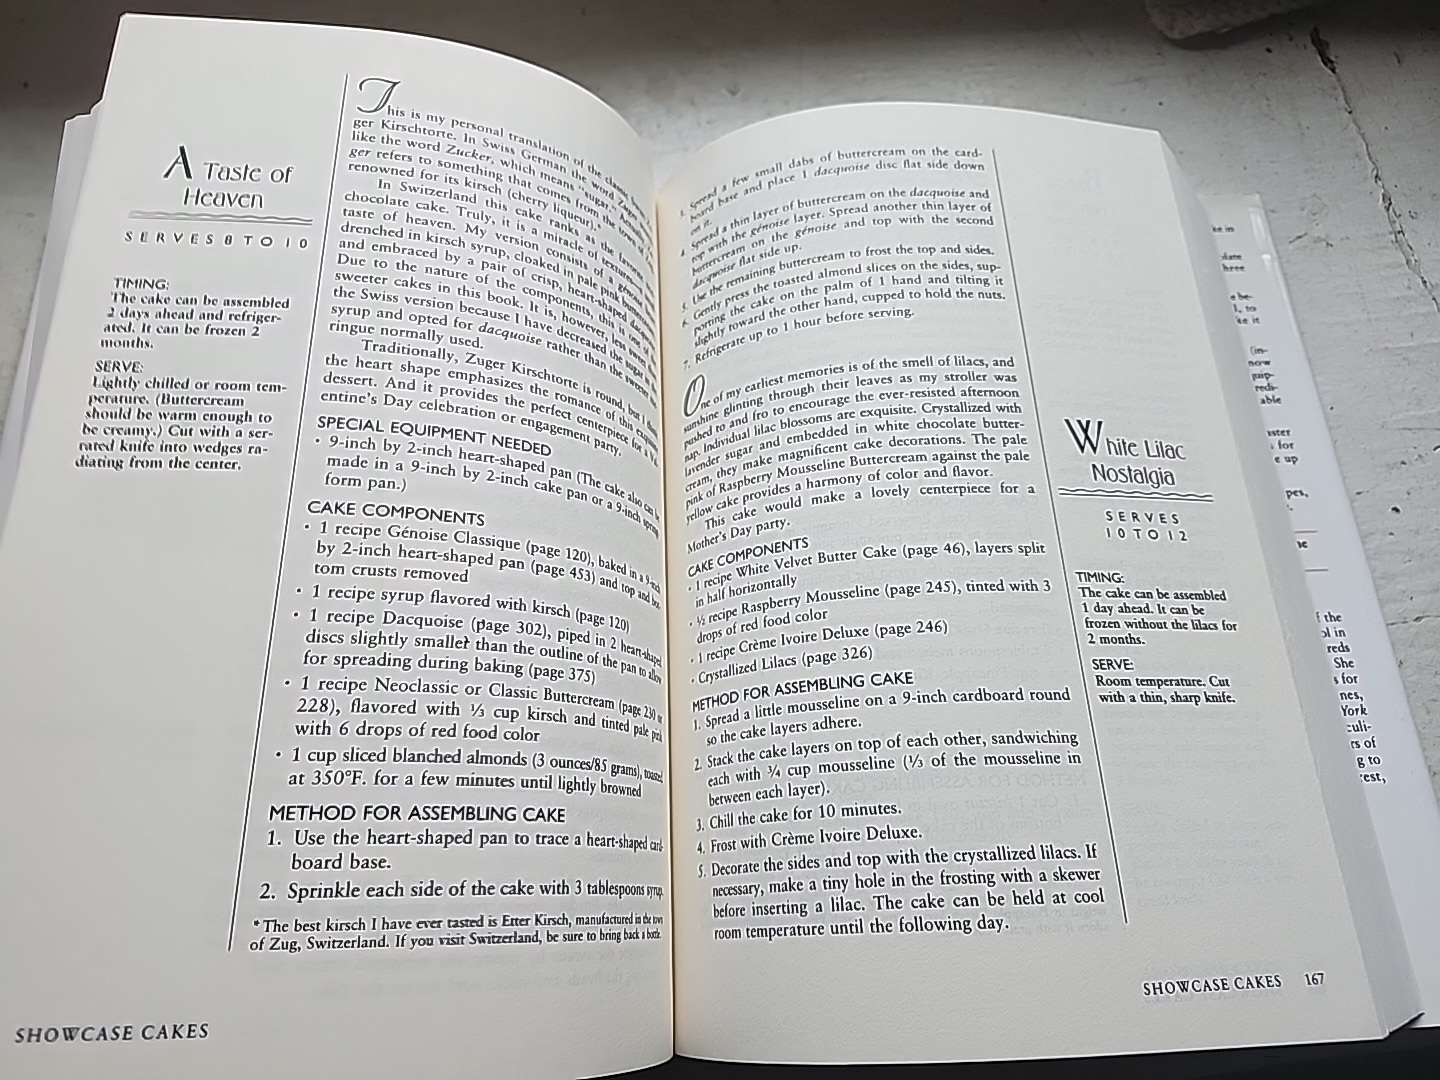 A Taste of
Heaven
SERVES 8 TO 10
TIMING:
The cake can be assembled
2 days ahead and refriger-
ated. It can be frozen 2
months.
SERVE:
Lightly chilled or room tem-
perature. (Buttercream
should be warm enough to
be creamy.) Cut with a ser-
rated knife into wedges ra-
diating from the center.
This is my personal translation of the classic
ger Kirschtorte. In Swiss German the word Zuger
like the word Zucker, which means "sugar."
ger refers to something that comes from the town of
renowned for its kirsch (cherry liqueur).*
In Switzerland this cake ranks as the favorite
chocolate cake. Truly, it is a miracle of textures
taste of heaven. My version consists of a génoise
drenched in kirsch syrup, cloaked in pale pink
and embraced by a pair of crisp, heart-shaped
Due to the nature of the components, this is one of
sweeter cakes in this book. It is, however, less sweet
the Swiss version because I have decreased the sugar in the
syrup and opted for dacquoise rather than the sweeter
ringue normally used.
Traditionally, Zuger Kirschtorte is round, but I
the heart shape emphasizes the romance of this
dessert. And it provides the perfect centerpiece for a Val-
entine's Day celebration or engagement party.
SPECIAL EQUIPMENT NEEDED
• 9-inch by 2-inch heart-shaped pan (The cake also can be
made in a 9-inch by 2-inch cake pan or a 9-inch spring
form pan.)
CAKE COMPONENTS
• 1 recipe Génoise Classique (page 120), baked in a 9-inch
by 2-inch heart-shaped pan (page 453) and top and bot-
tom crusts removed
• 1 recipe syrup flavored with kirsch (page 120)
• 1 recipe Dacquoise (page 302), piped in 2 heart-shaped
discs slightly smaller than the outline of the pan to allow
for spreading during baking (page 375)
• 1 recipe Neoclassic or Classic Buttercream (page 230 or
228), flavored with ⅓ cup kirsch and tinted pale pink
with 6 drops of red food color
• 1 cup sliced blanched almonds (3 ounces/85 grams), toasted
at 350°F. for a few minutes until lightly browned
METHOD FOR ASSEMBLING CAKE
1. Use the heart-shaped pan to trace a heart-shaped card-
board base.
2. Sprinkle each side of the cake with 3 tablespoons syrup.
* The best kirsch I have ever tasted is Etter Kirsch, manufactured in the town
of Zug, Switzerland. If you visit Switzerland, be sure to bring back a bottle.
SHOWCASE CAKES
3. Spread a few small dabs of buttercream on the card-
board base and place 1 dacquoise disc flat side down
on it.
4. Spread a thin layer of buttercream on the dacquoise and
top with the génoise layer. Spread another thin layer of
buttercream on the génoise and top with the second
dacquoise flat side up.
5. Use the remaining buttercream to frost the top and sides.
6. Gently press the toasted almond slices on the sides, sup-
porting the cake on the palm of 1 hand and tilting it
slightly toward the other hand, cupped to hold the nuts.
7. Refrigerate up to 1 hour before serving.
One of my earliest memories is of the smell of lilacs, and
sunshine glinting through their leaves as my stroller was
pushed to and fro to encourage the ever-resisted afternoon
nap. Individual lilac blossoms are exquisite. Crystallized with
lavender sugar and embedded in white chocolate butter-
cream, they make magnificent cake decorations. The pale
pink of Raspberry Mousseline Buttercream against the pale
yellow cake provides a harmony of color and flavor.
This cake would make a lovely centerpiece for a
Mother's Day party.
CAKE COMPONENTS
• 1 recipe White Velvet Butter Cake (page 46), layers split
in half horizontally
• ½ recipe Raspberry Mousseline (page 245), tinted with 3
drops of red food color
• 1 recipe Crème Ivoire Deluxe (page 246)
• Crystallized Lilacs (page 326)
METHOD FOR ASSEMBLING CAKE
1. Spread a little mousseline on a 9-inch cardboard round
so the cake layers adhere.
2. Stack the cake layers on top of each other, sandwiching
each with ¾ cup mousseline (⅓ of the mousseline in
between each layer).
3. Chill the cake for 10 minutes.
4. Frost with Crème Ivoire Deluxe.
5. Decorate the sides and top with the crystallized lilacs. If
necessary, make a tiny hole in the frosting with a skewer
before inserting a lilac. The cake can be held at cool
room temperature until the following day.
White Lilac
Nostalgia
SERVES
10 TO 12
TIMING:
The cake can be assembled
1 day ahead. It can be
frozen without the lilacs for
2 months.
SERVE:
Room temperature. Cut
with a thin, sharp knife.
SHOWCASE CAKES 167